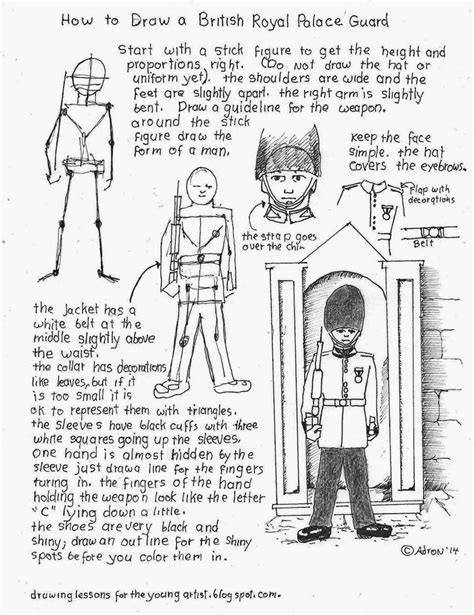 How to Draw a British Royal Palace Guard
Start with a stick figure to get the height and
proportions right. (Do not draw the hat or
uniform yet). the shoulders are wide and the
feet are slightly apart. the right arm is slightly
bent. Draw a guideline for the weapon.
around the stick
figure draw the
form of a man.
keep the face
simple. the hat
covers the eyebrows.
Flap with
decorations
Belt
the strap goes
over the chin.
the jacket has a
white belt at the
middle slightly above
the waist.
the collar has decorations
like leaves, but if it
is too small it is
ok to represent them with triangles.
the sleeves have black cuffs with three
white squares going up the sleeves.
One hand is almost hidden by the
sleeve just draw a line for the fingers
turing in. the fingers of the hand
holding the weapon look like the letter
"C" lying down a little.
the shoes are very black and
shiny; draw an outline for the shiny
spots before you color them in.
© Adron '14
drawing lessons for the young artist. blogspot.com.